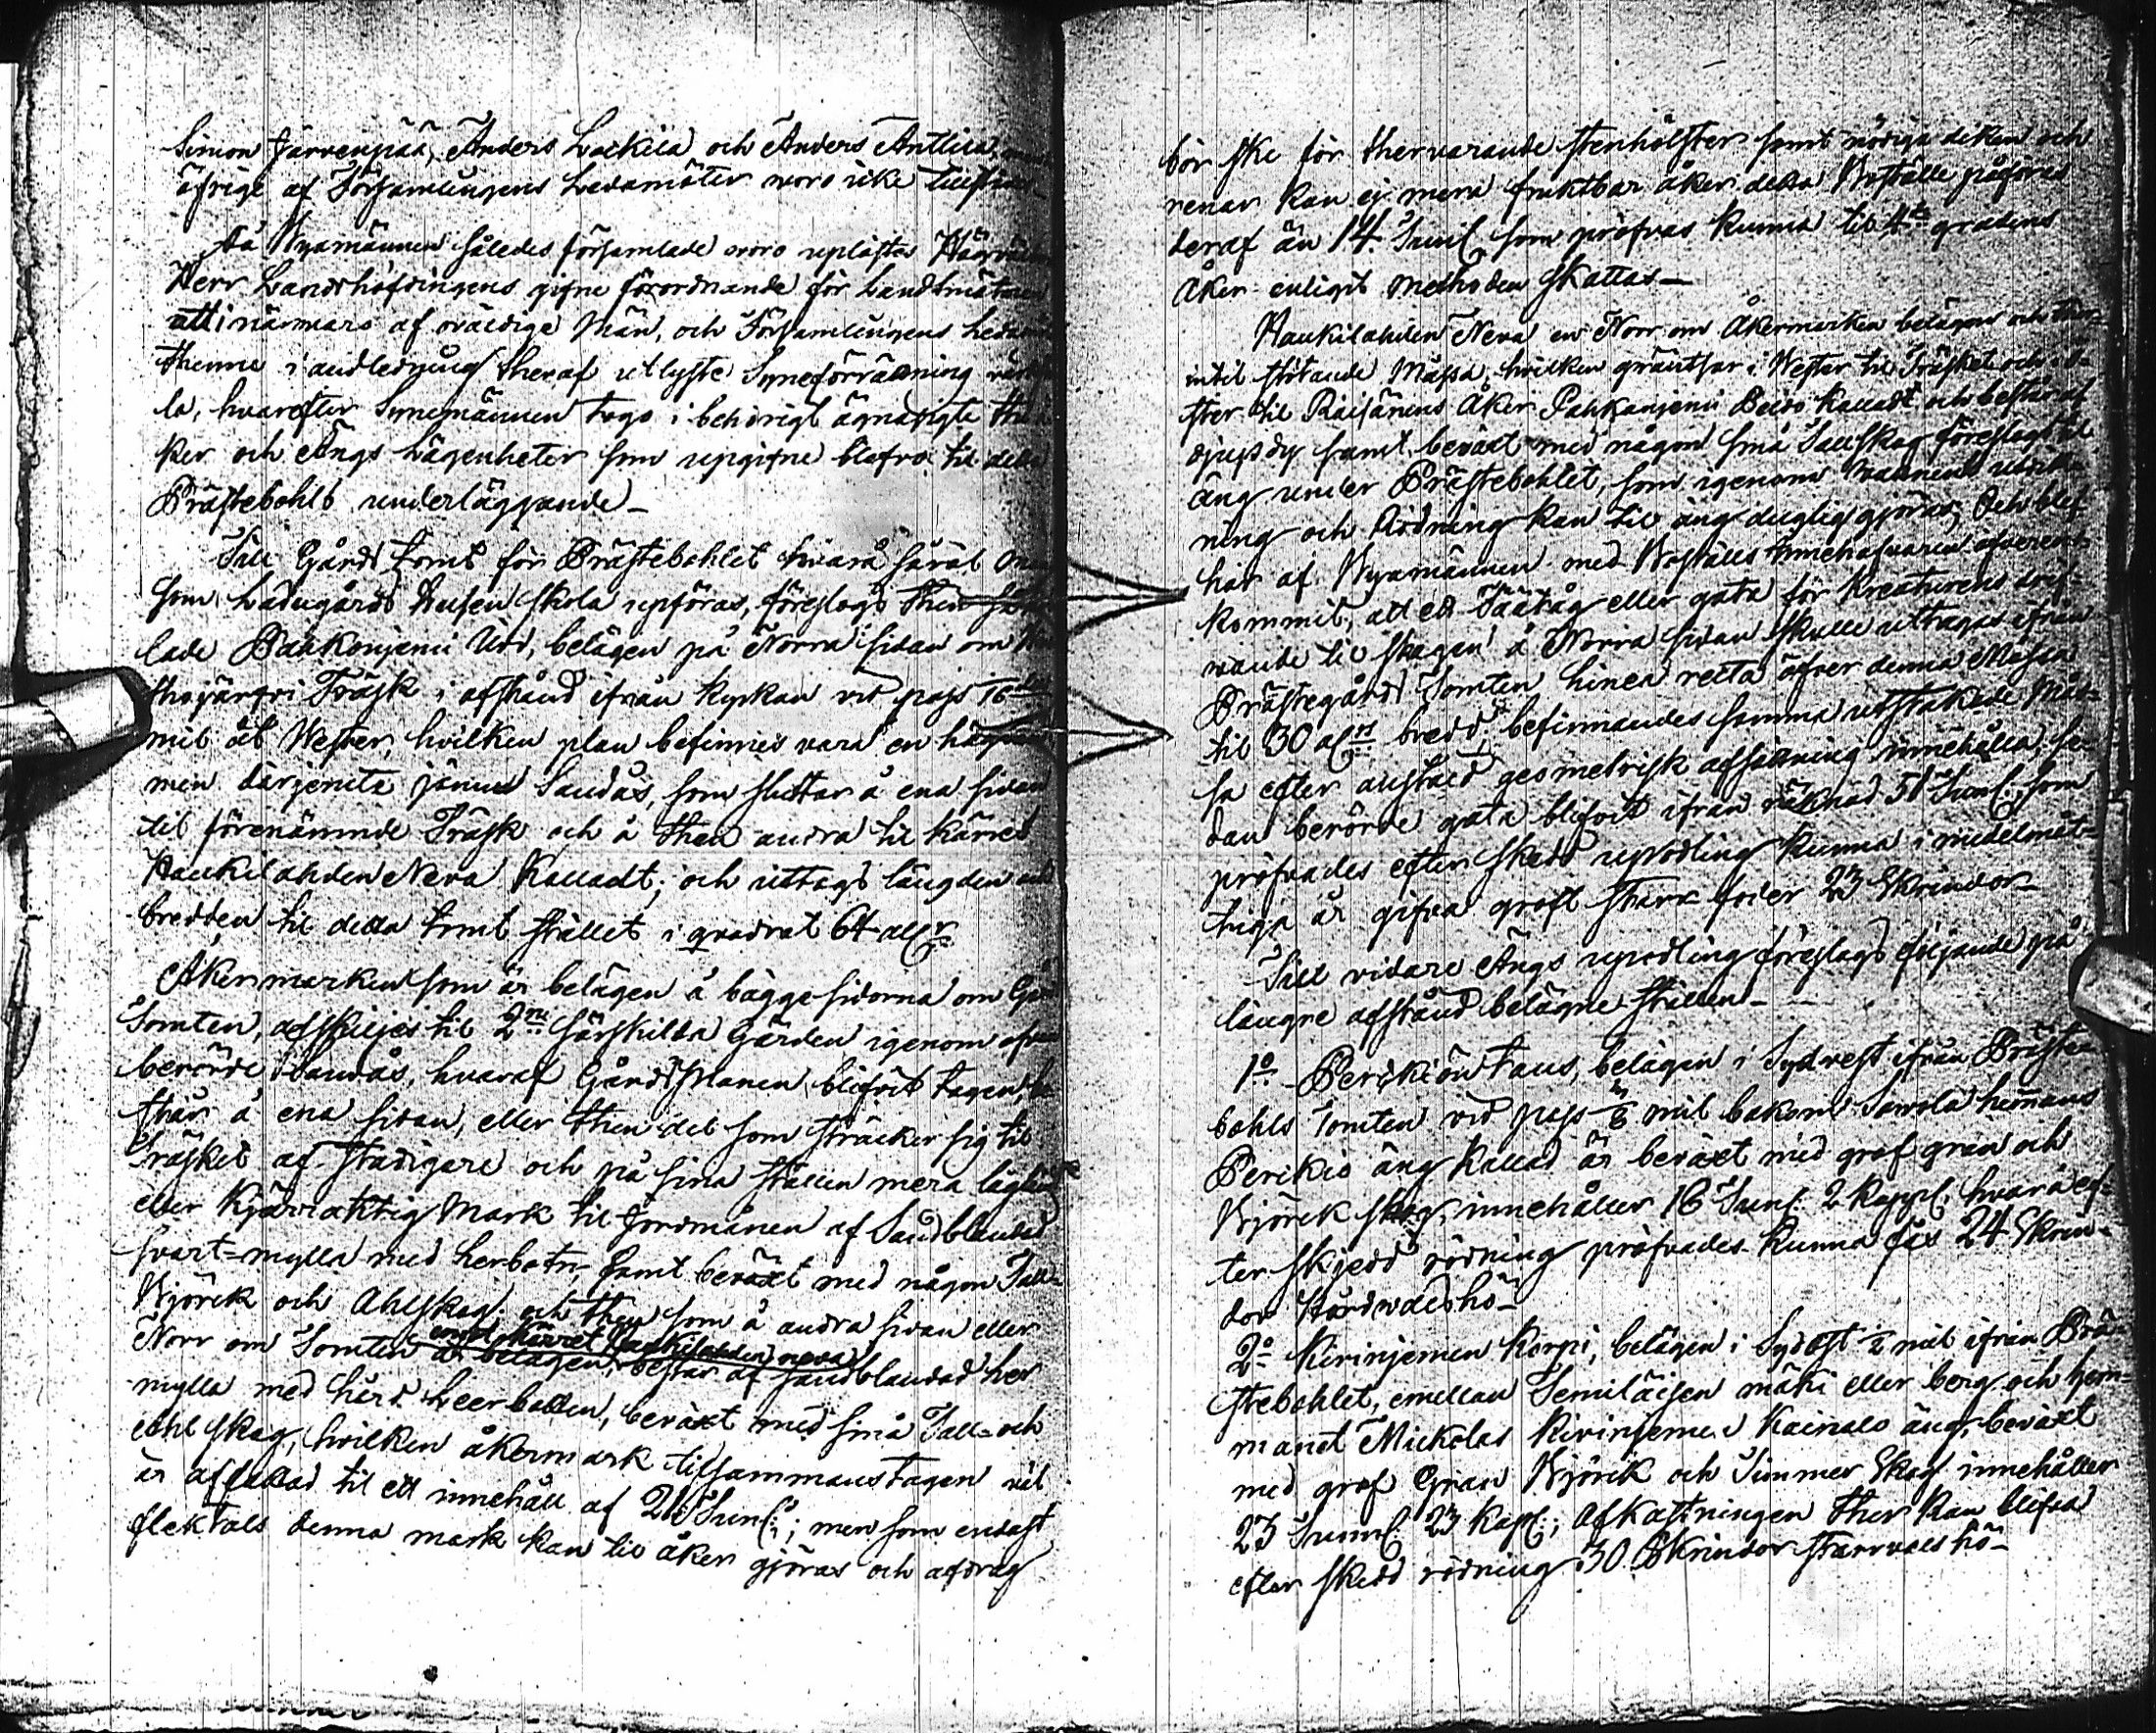 Simon Järvenpää, Anders Lackila och Anders Anttila,
öfrige af Församlingens Ledamöter woro icke
Då Synemännen således församlade woro uplästes
Herr Landshöfdingens gifne förordnande för Landtmätare
att i närwaro af owäldige Män, och Församlingens
thenne i anledning theraf utlyste Syneförrättning
la, hvarefter Synemännen togo i behörigt ögnasigte
ker och Ängs Lägenheter som upgifne blefwo til detta
Prästebohls underläggande_
Till Gårds tomt för Prästebohlet hvarå såväl
som Ladugårds Husen skola upföras, föreslogs then
lade Pahkonjemi Udd, belägen på Norra sidan om
thojärfvi Träsk i afstånd ifrån kyrkan vid pass 16
mil åt Wester, hvilken plan befinnes vara en
men därjemte jämn Sandås, som sluttar å ena sidan
til förenämnde Träsk och å then andra til kärret
Haukilahden Neva kalladt; och uttogs längden och
bredden til detta tomt stället i qvadrat 64 alnr
Åkermarken som är belägen å bägge sidorna om
Tomten, afskiljes til 2ne särskilda Gärden igenom
berörde Sandås, hvaraf Gårdsplanen blifvit tagen,
står å ena sidan, eller then del som sträcker sig til
Träsket af stadigare och på sina ställen mera
eller kjärraktig Mark til Jordmånen af Sandblandad
svart-mylla med lerbotn, samt beväxt med någon Tall-
Björck och Ahlskog, och then som å andra sidan eller
emot kärret Haukilahden neva
Norr om Tomten är belägen, består af sandblandad
mylla med hård Leerbotten, beväxt med små Tall- och
ahl skog, hvilken åkermark tilsammans tagen väl
är affattad til ett innehåll af 26 Tunl:; men som endast
flektals denna mark kan til åker gjöras och afdrag
bör ske för thervarande stenholster samt nödiga diken och
renar kan ej mera fruktbar åker detta Boställe påföras
deraf än 14. Tunl, som pröfvas kunna til 4de gradens
Åker enligit Methoden skattas_
Haukilahden Neva en Norr om Åkermarken belägen och
intil stötande Måssa, hvilken gräntsar i Wester til Träsket och
ster til Raisänens Åker Pahkanjemi kalladt och består af
djup dy samt beväxt med någon små Tallskog föreslogs til
äng under Prästebohlet, som igenom vattnens utdik-
ning och Rödning kan til äng duglig gjöras; Och blef
här af Synemännen med Boställs Innehafvaren öfverens-
kommit, att ett Täätåg eller gata för Kreaturens drif-
vande til skogen å Norra sidan skulle uttagas ifrån
Prästegårds Tomten linea recta öfver denna Måssa
til 30 alnrs bredd; befinnandes samma utstakade Mås-
sa efter anstäld geometrisk afsätning innehålla, se-
dan berörde gata blifvit ifrån räknad 51 Tunl, som
pröfvades efter skedd uprodling kunna i medelmåt-
tiga år gifva groft starr foder 23 Skrindor_
Till vidare Ängs uprodling föreslogs följande på
längre afstånd belägne ställen_
1o_ Perikiön taus, belägen i Sydvest ifrån Präste-
bohls Tomten vid pass 1/8 mil bakom hemans
Perikiö äng kallad är beväxt med grof gran och
Björck skog, innehåller 16 Tunl. 2 Kappl. hvarå ef-
ter skjedd rödning pröfvades kunna fås 24 Skrin-
dor Hårdwalshö_
2o_ Kirinjemen Korpi, belägen i Sydost 1/2 mil ifrån Prä-
stebohlet, emellan mäki eller berg och hem-
manet Mickolas Kirinjemen Kainalo äng, beväxt
med grof Gran Björck och Timmer Skog innehåller
23 Tunnl: 23 kapl:; Afkastningen ther kan blifva
efter skedd rödning 30 Skrindor starrvalshö_